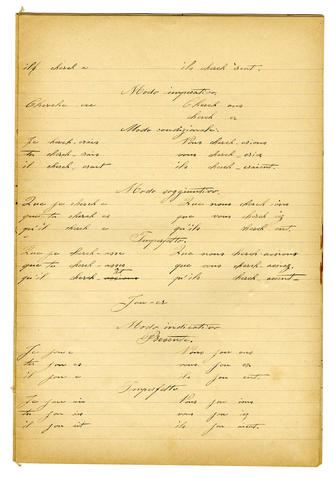 il cherch e ils cherch èrent.
Modo imperativo.
Cherche Cherch ons
cherch ez
Modo condizionale.
Je cherch-erais Nous cherch-erions
tu cherch-erais vous cherch-eriez
il cherch-erait ils cherch-eraient.
Modo soggiuntivo.
Que je cherch e Que nous cherch-ions
que tu cherch es que vous cherch iez
qu'il cherch e qu'ils cherch ent.
Imperfetto.
Que je cherch-asse Que nous cherch-assions
que tu cherch-asses que vous cherch-assiez
qu'il cherch qu'ils cherch-assent-
Jou-er
Modo indicativo
Presente.
Je jou e Nous jou ons
tu jou es vous jou ez
il jou e ils jou ent.
Imperfetto
Je jou ais Nous jou ions
tu jou ais vous jou iez
il jou ait ils jou aient.